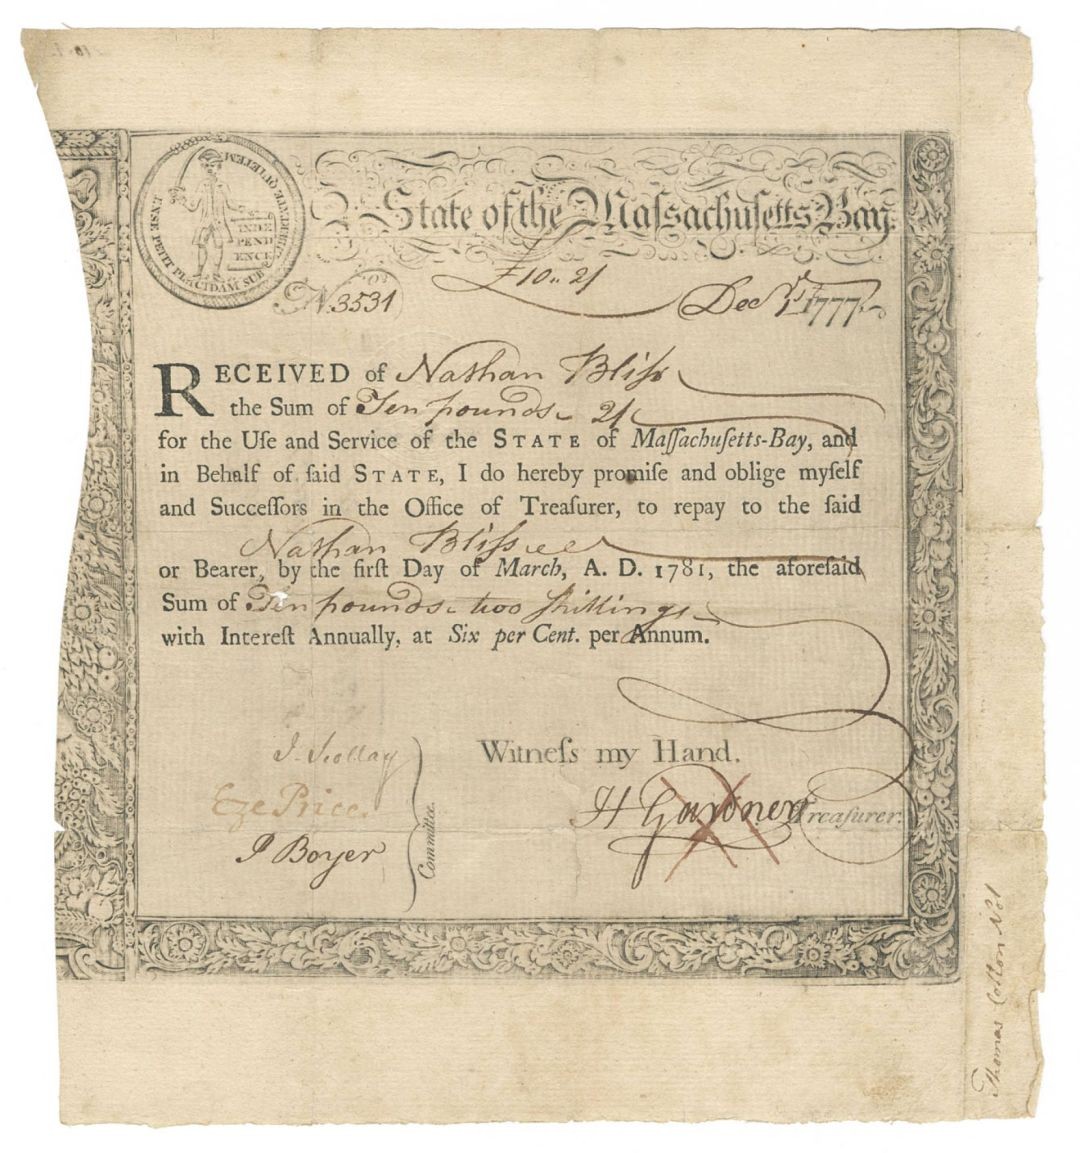 ENSE PETIT PLACIDAM SUB LIBERTATE QUIETEM
INDE
PEND
ENCE
State of the Maſsachuſetts Bay.
£10 .. 2/
No. 3531
Decr. 1st 1777
RECEIVED of Nathan Bliſs
the Sum of Ten pounds 2/
for the Uſe and Service of the STATE of Maſſachuſetts-Bay, and
in Behalf of ſaid STATE, I do hereby promiſe and oblige myſelf
and Succeſſors in the Office of Treaſurer, to repay to the ſaid
Nathan Bliſs
or Bearer, by the firſt Day of March, A. D. 1781, the aforeſaid
Sum of Ten pounds two shillings
with Intereſt Annually, at Six per Cent. per Annum.
Witneſs my Hand.
J. Scollay
Eze Price.
J Boyer
Committee.
H Gardner Treaſurer.
Thomas Cotton Not